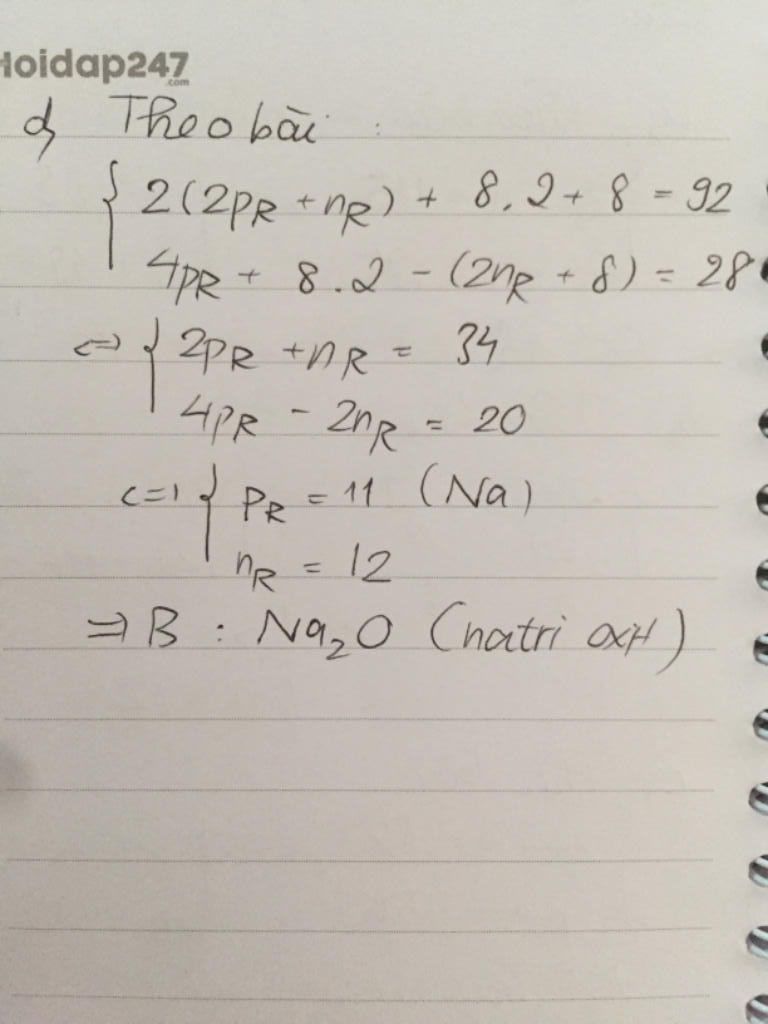 Hoidap247
.com
d, Theo bài :
{ 2(2pR + nR) + 8.2 + 8 = 92
4pR + 8.2 - (2nR + 8) = 28
<=> { 2pR + nR = 34
4pR - 2nR = 20
<=> { pR = 11 (Na)
nR = 12
=> B : Na₂O (natri oxit)